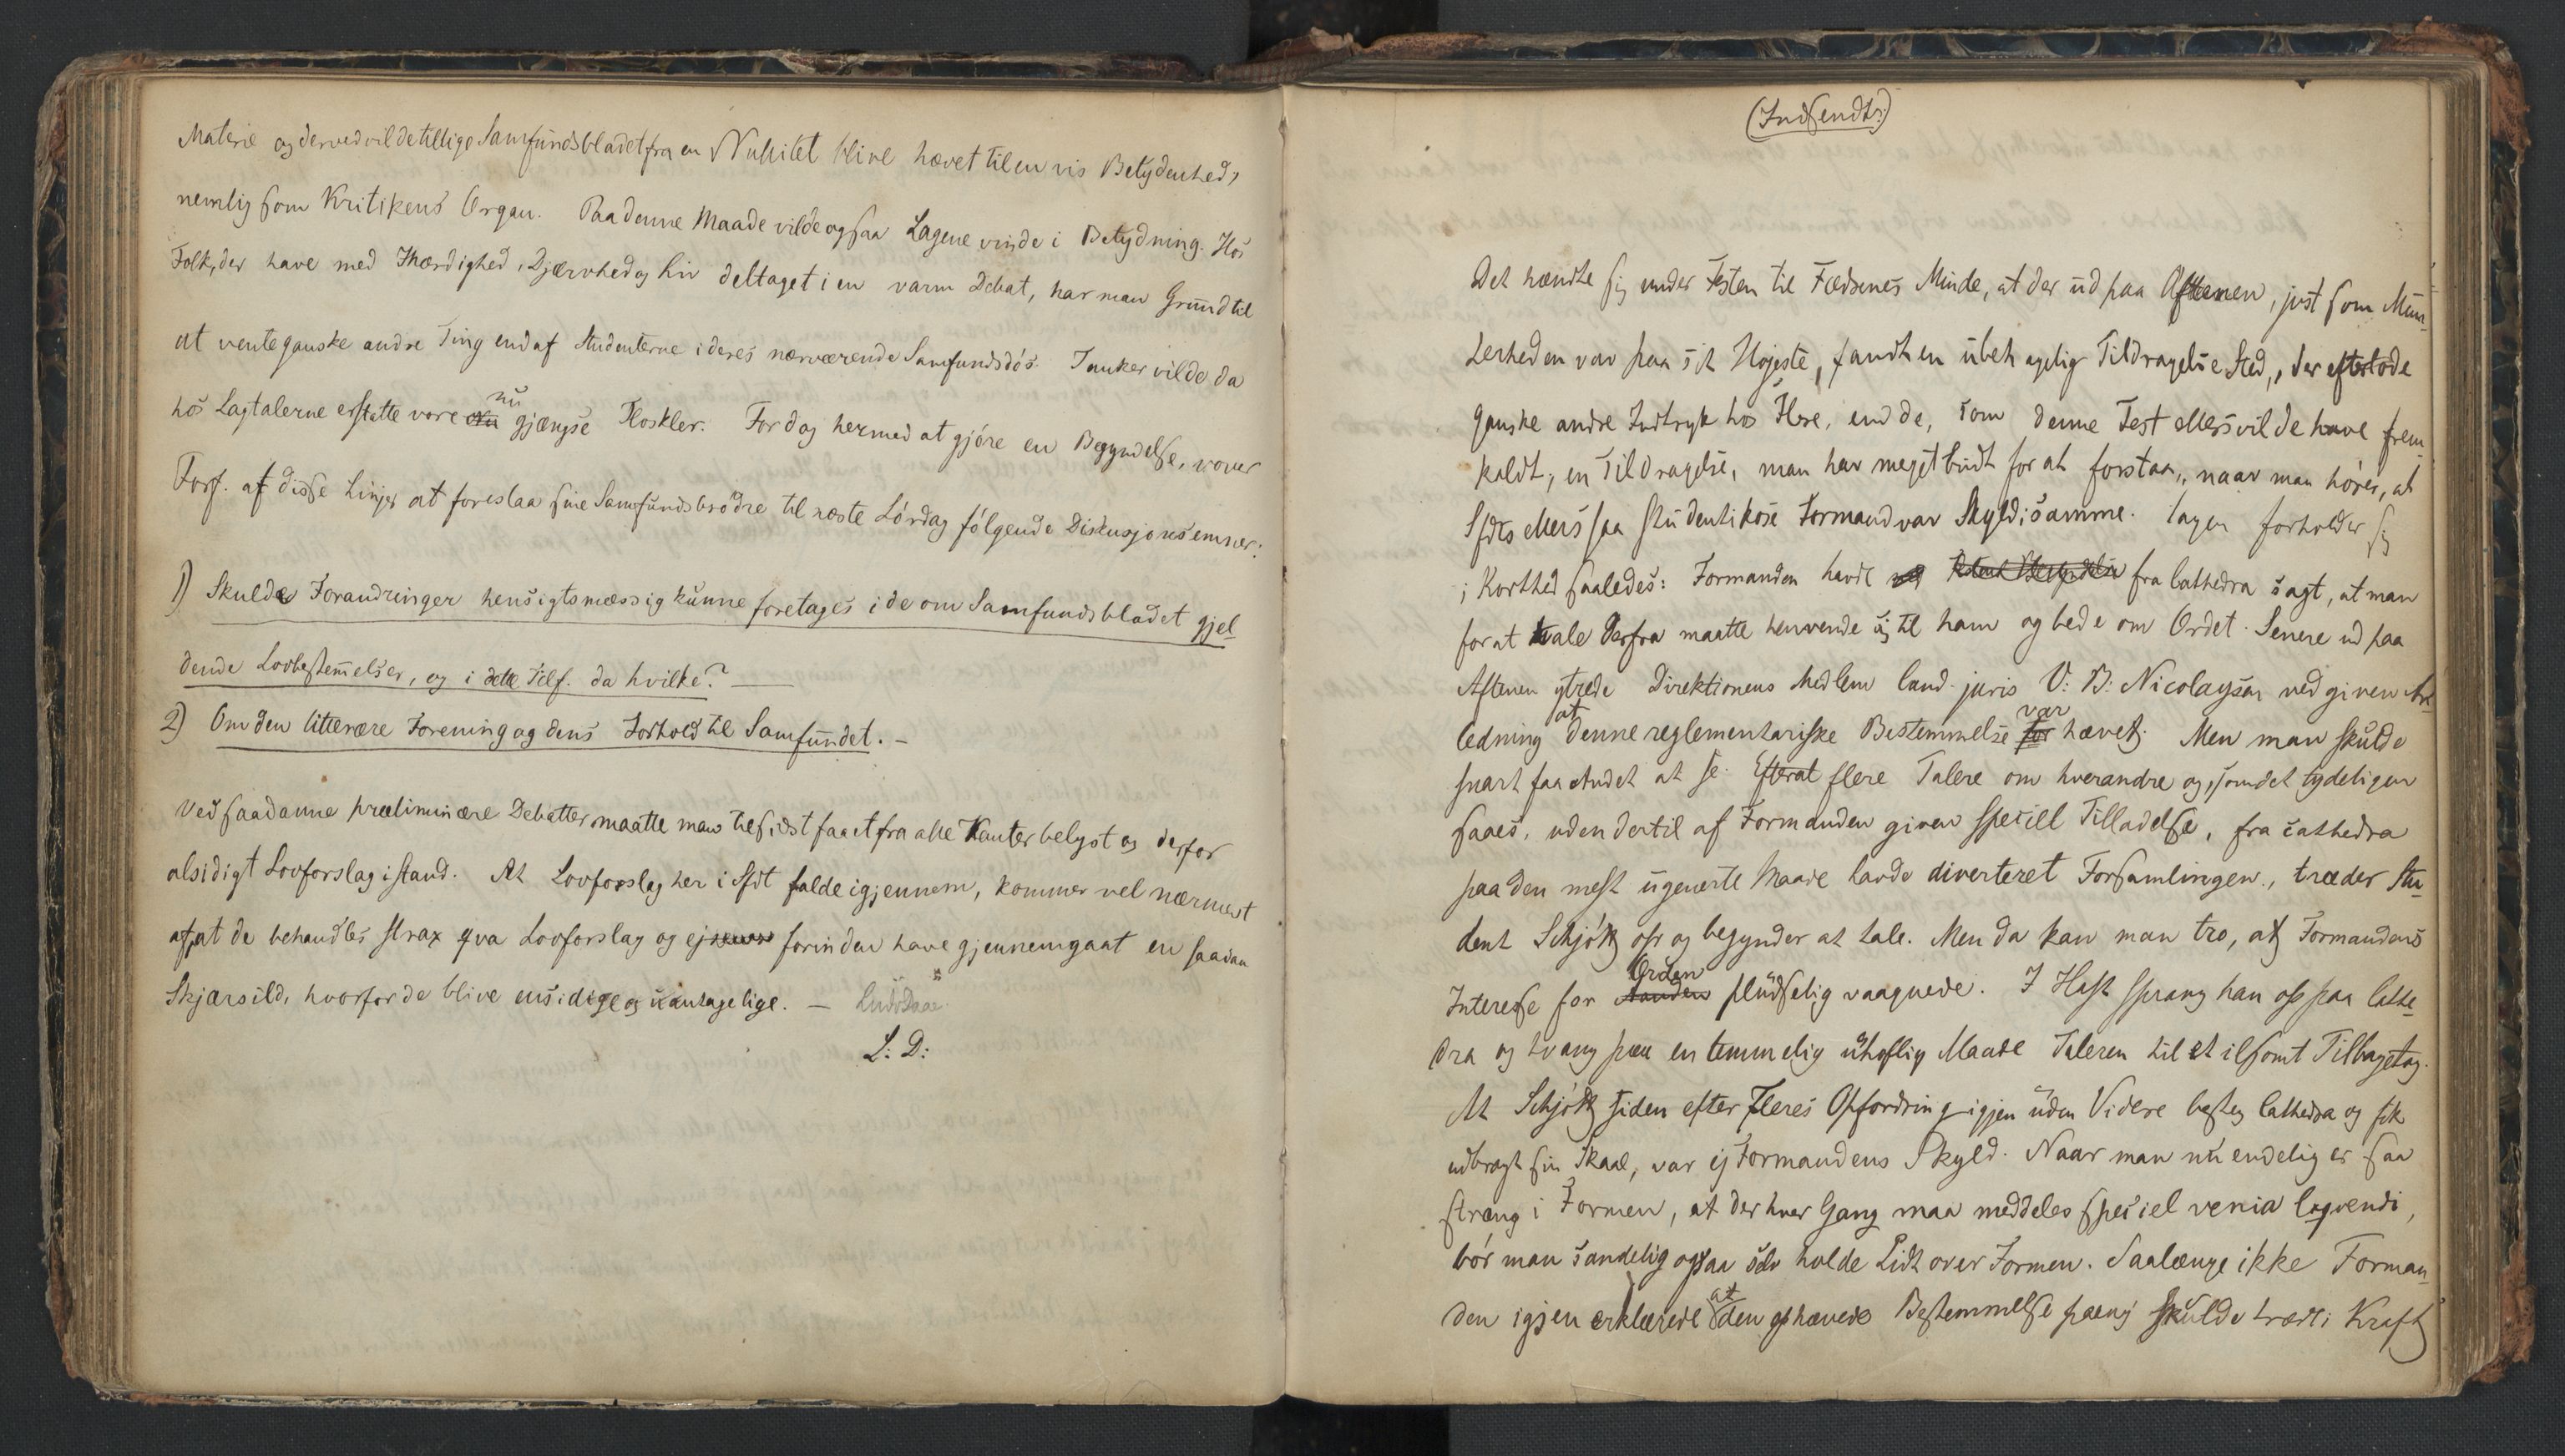 Materie og derved vilde tillige Samfundsbladet fra en Nullitet blive hævet til en vis Betydenhed,
nemlig som Kritikens Organ. Paa denne Maade vilde ogsaa Lagene vinde i Betydning. Hos
Folk, der have med Ihærdighed, Djærvhed og Liv deltaget i en varm Debat, har man Grund til
at vente ganske andre Ting end af Studenterne i deres nærværende Samfundsdös. Tanker vilde da
hos Lagtalerne erstatte vore nu gjængse Floskler. For dog hermed at gjöre en Begyndelse, vover
Forf. af disse Linjer at foreslaa sine Samfundsbrödre til næste Lördag fölgende Diskusjonsemner:
1) Skulde Forandringer hensigtsmæssig kunne foretages i de om Samfundsbladet gjel-
dende Lovbestemelser, og i dette Tilf. da hvilke? —
2) Om den litterære Forening og dens Forhold til Samfundet. —
Ved saadanne præliminære Debatter maatte man tilsidst faaet fra alle Kanter belyst og derfor
alsidigt Lovforslag istand. At Lovforslag her i Sfdt falde igjennem, kommer vel nærmest
af, at de behandles strax qva Lovforslag og ej forinden have gjennemgaat en saadan
Skjærsild, hvorfor de blive ensidige og uantagelige. —
L: D:
(Indsendt:)
Det hændte sig under Festen til Fædrenes Minde, at der ud paa Aftenen, just som Mun-
terheden var paa sit Højeste, fandt en ubehagelig Tildragelse Sted, der efterlode
ganske andre Indtryk hos Flere, end de, som denne Fest ellers vilde have frem-
kaldt, en Tildragelse, man har meget ondt for at forstaa, naar man hörer, at
Sfdts ellers saa studentikose Formand var Skyld i samme. Sagen forholder sig
i Korthed saaledes: Formanden havde fra Cathedra sagt, at man
for at tale derfra maatte henvende sig til ham og bede om Ordet. Senere ud paa
Aftenen ytrede Direktionens Medlem Cand. juris V: B: Nicolaysen ved given An-
ledning at denne reglementariske Bestemmelse var hævet. Men man skulde
snart faa Andet at se. Efterat flere Talere om hverandre og, som det tydeligen
saaes, uden dertil af Formanden given speciell Tilladelse, fra Cathedra
paa den mest ugenerte Maade havde diverteret Forsamlingen, træder Stu-
dent Schjött op og begynder at tale. Men da kan man tro, at Formandens
Interesse for Orden pludselig vaagnede. I Hast sprang han op paa Cathe-
dra og tvang paa en temmelig uhöflig Maade Taleren til et ilsomt Tilbagetog.
At Schjött siden efter Fleres Opfordring igjen uden Videre besteg Cathedra og fik
udbragt sin Skaal, var ej Formandens Skyld. Naar man nu endelig er saa
streng i Formen, at der hver Gang maa meddeles speciel venia loqvendi,
bör man sandelig ogsaa selv holde Lidt over Formen. Saalænge ikke Forman-
den igjen erklærede at den ophævede Bestemmelse paany skulde træde i Kraft